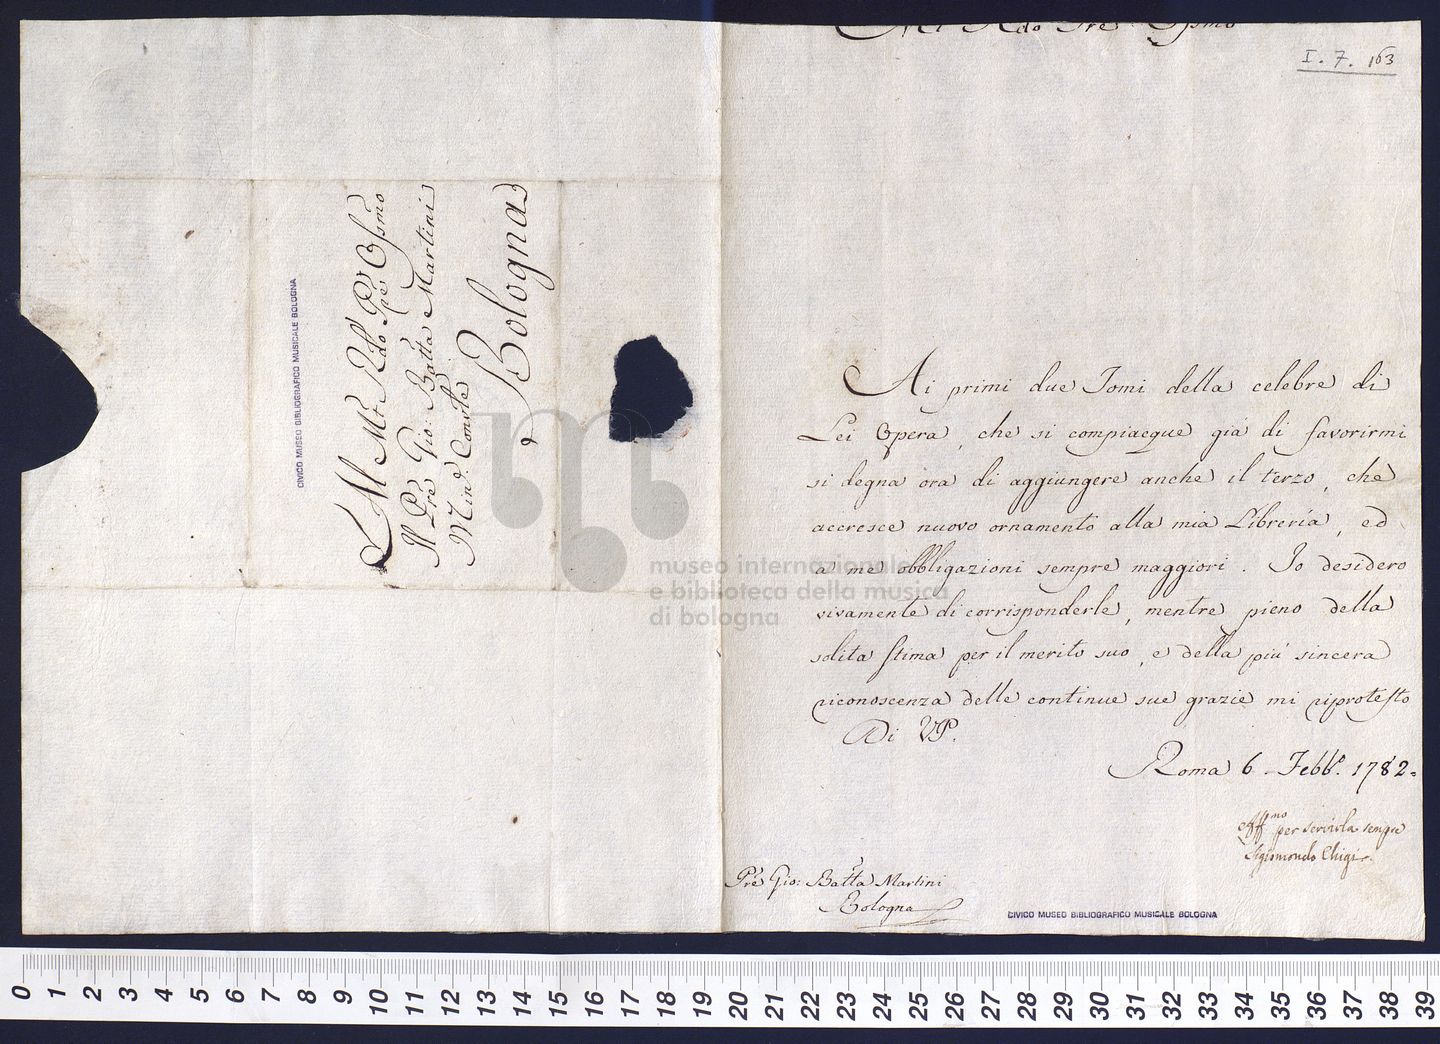 Al Mto Rdo Pre Ossmo
Il Pre Pre Gio: Batta Martini
Min: Conve
Bologna
CIVICO MUSEO BIBLIOGRAFICO MUSICALE BOLOGNA
Mto Rdo Pre Ossmo
I. 7. 163
Ai primi due Tomi della celebre di
Lei Opera, che si compiacque già di favorirmi
si degna ora di aggiungere anche il terzo, che
accresce nuovo ornamento alla mia Libreria, ed
a me obbligazioni sempre maggiori. Io desidero
vivamente di corrisponderle, mentre pieno della
solita stima per il merito suo, e della più sincera
riconoscenza delle continue sue grazie mi riprotesto
Di VP.
Roma 6 Febb.o 1782.
Affmo per servirla sempre
Sigismondo Chigi
Pre Gio: Batta Martini
Bologna
CIVICO MUSEO BIBLIOGRAFICO MUSICALE BOLOGNA
museo internazionale
e biblioteca della musica
di bologna
0 1 2 3 4 5 6 7 8 9 10 11 12 13 14 15 16 17 18 19 20 21 22 23 24 25 26 27 28 29 30 31 32 33 34 35 36 37 38 39